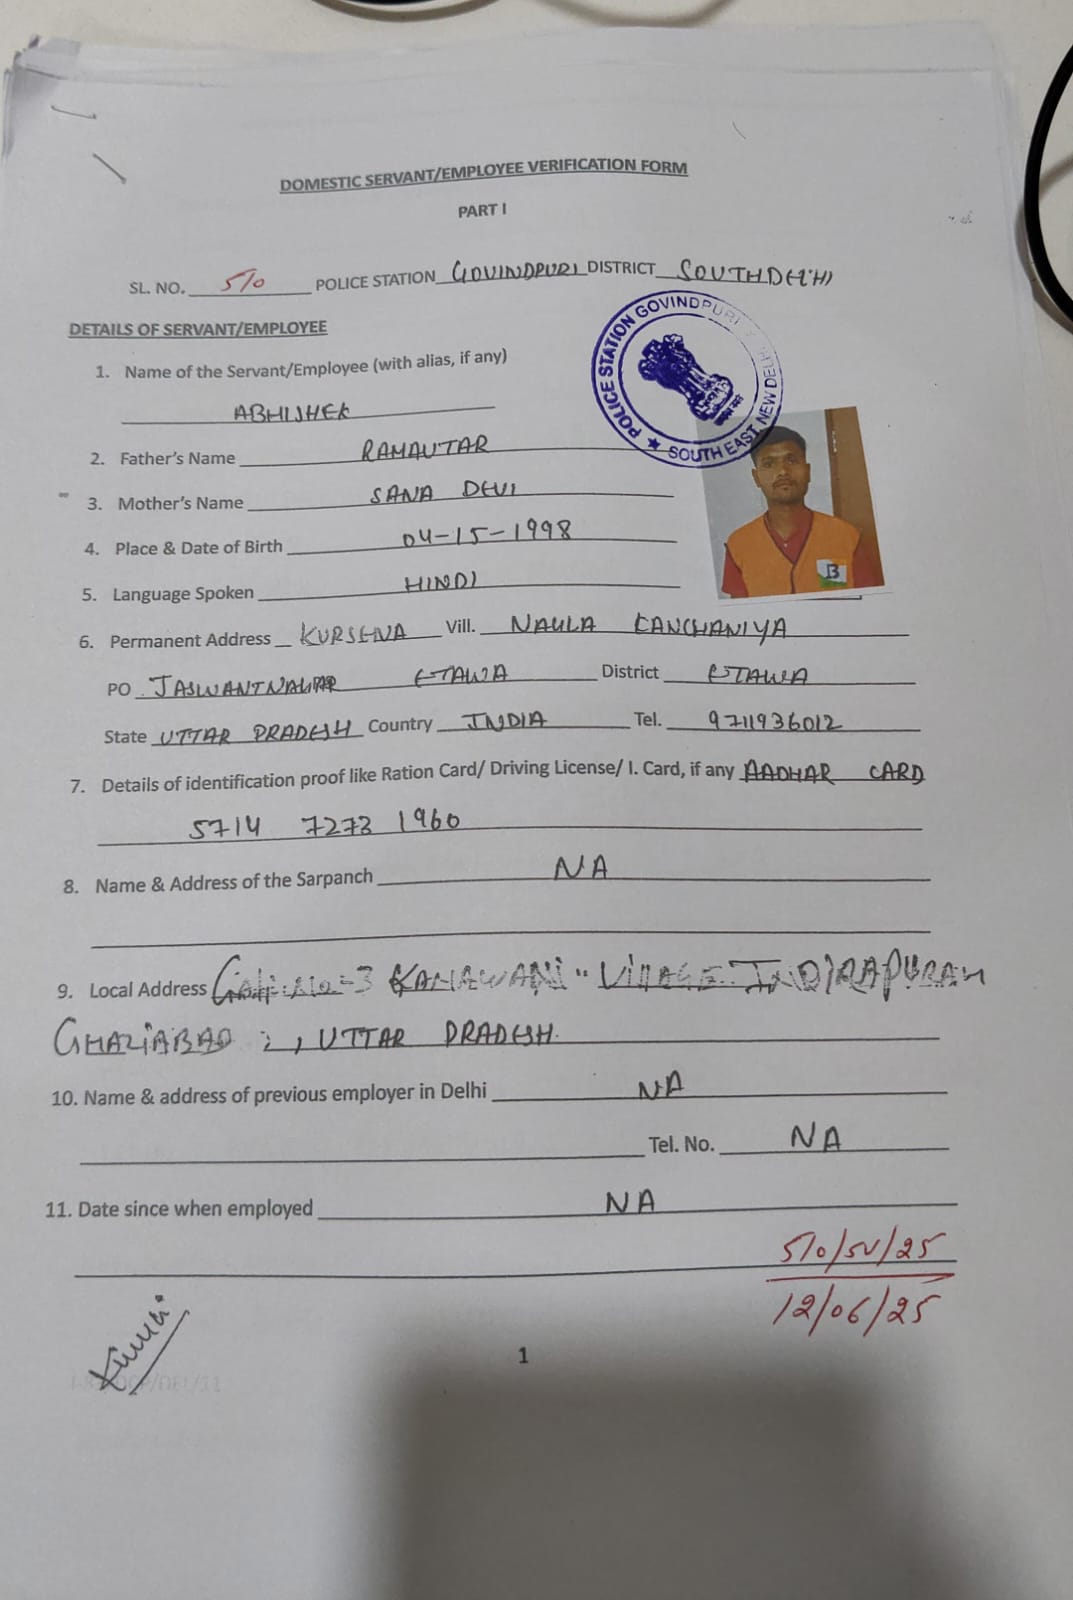 DOMESTIC SERVANT/EMPLOYEE VERIFICATION FORM
PART I
SL. NO. 510 POLICE STATION GOVINDPURI DISTRICT SOUTH DELHI
DETAILS OF SERVANT/EMPLOYEE
POLICE STATION GOVINDPURI
SOUTH EAST, NEW DELHI
1. Name of the Servant/Employee (with alias, if any)
ABHISHEK
2. Father's Name RAMAUTAR
3. Mother's Name SANA DEVI
4. Place & Date of Birth 04-15-1998
5. Language Spoken HINDI
B
6. Permanent Address KURSENA Vill. NAGLA KANCHANIYA
PO JASWANTNAGAR ETAWA District ETAWA
State UTTAR PRADESH Country INDIA Tel. 9711936012
7. Details of identification proof like Ration Card/ Driving License/ I. Card, if any AADHAR CARD
5714 7273 1960
8. Name & Address of the Sarpanch NA
9. Local Address Gali No-3 KANAWANI VillAGE INDIRAPURAM
GHAZIABAD , UTTAR PRADESH.
10. Name & address of previous employer in Delhi NA
Tel. No. NA
11. Date since when employed NA
510/SV/25
12/06/25
1